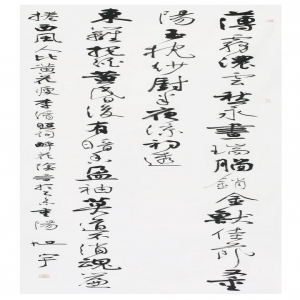 薄霧濃雲愁永晝瑞腦銷金獸佳節又重
陽玉枕紗廚半夜涼初透
東籬把酒黃昏後有暗香盈袖莫道不消魂簾
捲西風人比黃花瘦李清照詞醉花陰書於乙未重陽旭宇